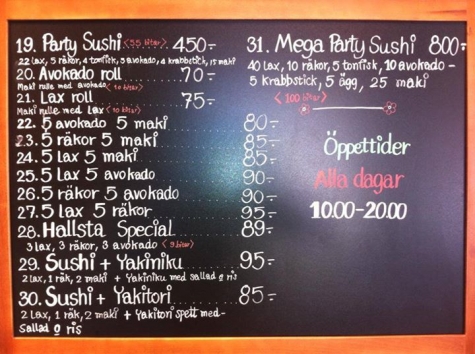 19. Party Sushi <55 bitar> 450:-
22 lax, 5 räkor, 4 tonfisk, 5 avokado, 4 krabbstick, 15 maki
20. Avokado roll 70:-
Maki rulle med avokado <10 bitar>
21. Lax roll 75:-
Maki rulle med Lax <10 bitar>
22. 5 avokado 5 maki 80:-
23. 5 räkor 5 maki 85:-
24. 5 lax 5 maki 85:-
25. 5 lax 5 avokado 90:-
26. 5 räkor 5 avokado 90:-
27. 5 lax 5 räkor 95:-
28. Hallsta Special 89:-
3 lax, 3 räkor, 3 avokado <9 bitar>
29. Sushi + Yakiniku 95:-
2 lax, 1 räk, 2 maki + Yakiniku med sallad o ris
30. Sushi + Yakitori 85:-
2 lax, 1 räk, 2 maki + Yakitori spett med-
Sallad o ris
31. Mega Party Sushi 800:-
40 lax, 10 räkor, 5 tonfisk, 10 avokado-
5 krabbstick, 5 ägg, 25 maki
<100 bitar>
Öppettider
Alla dagar
10.00-20.00